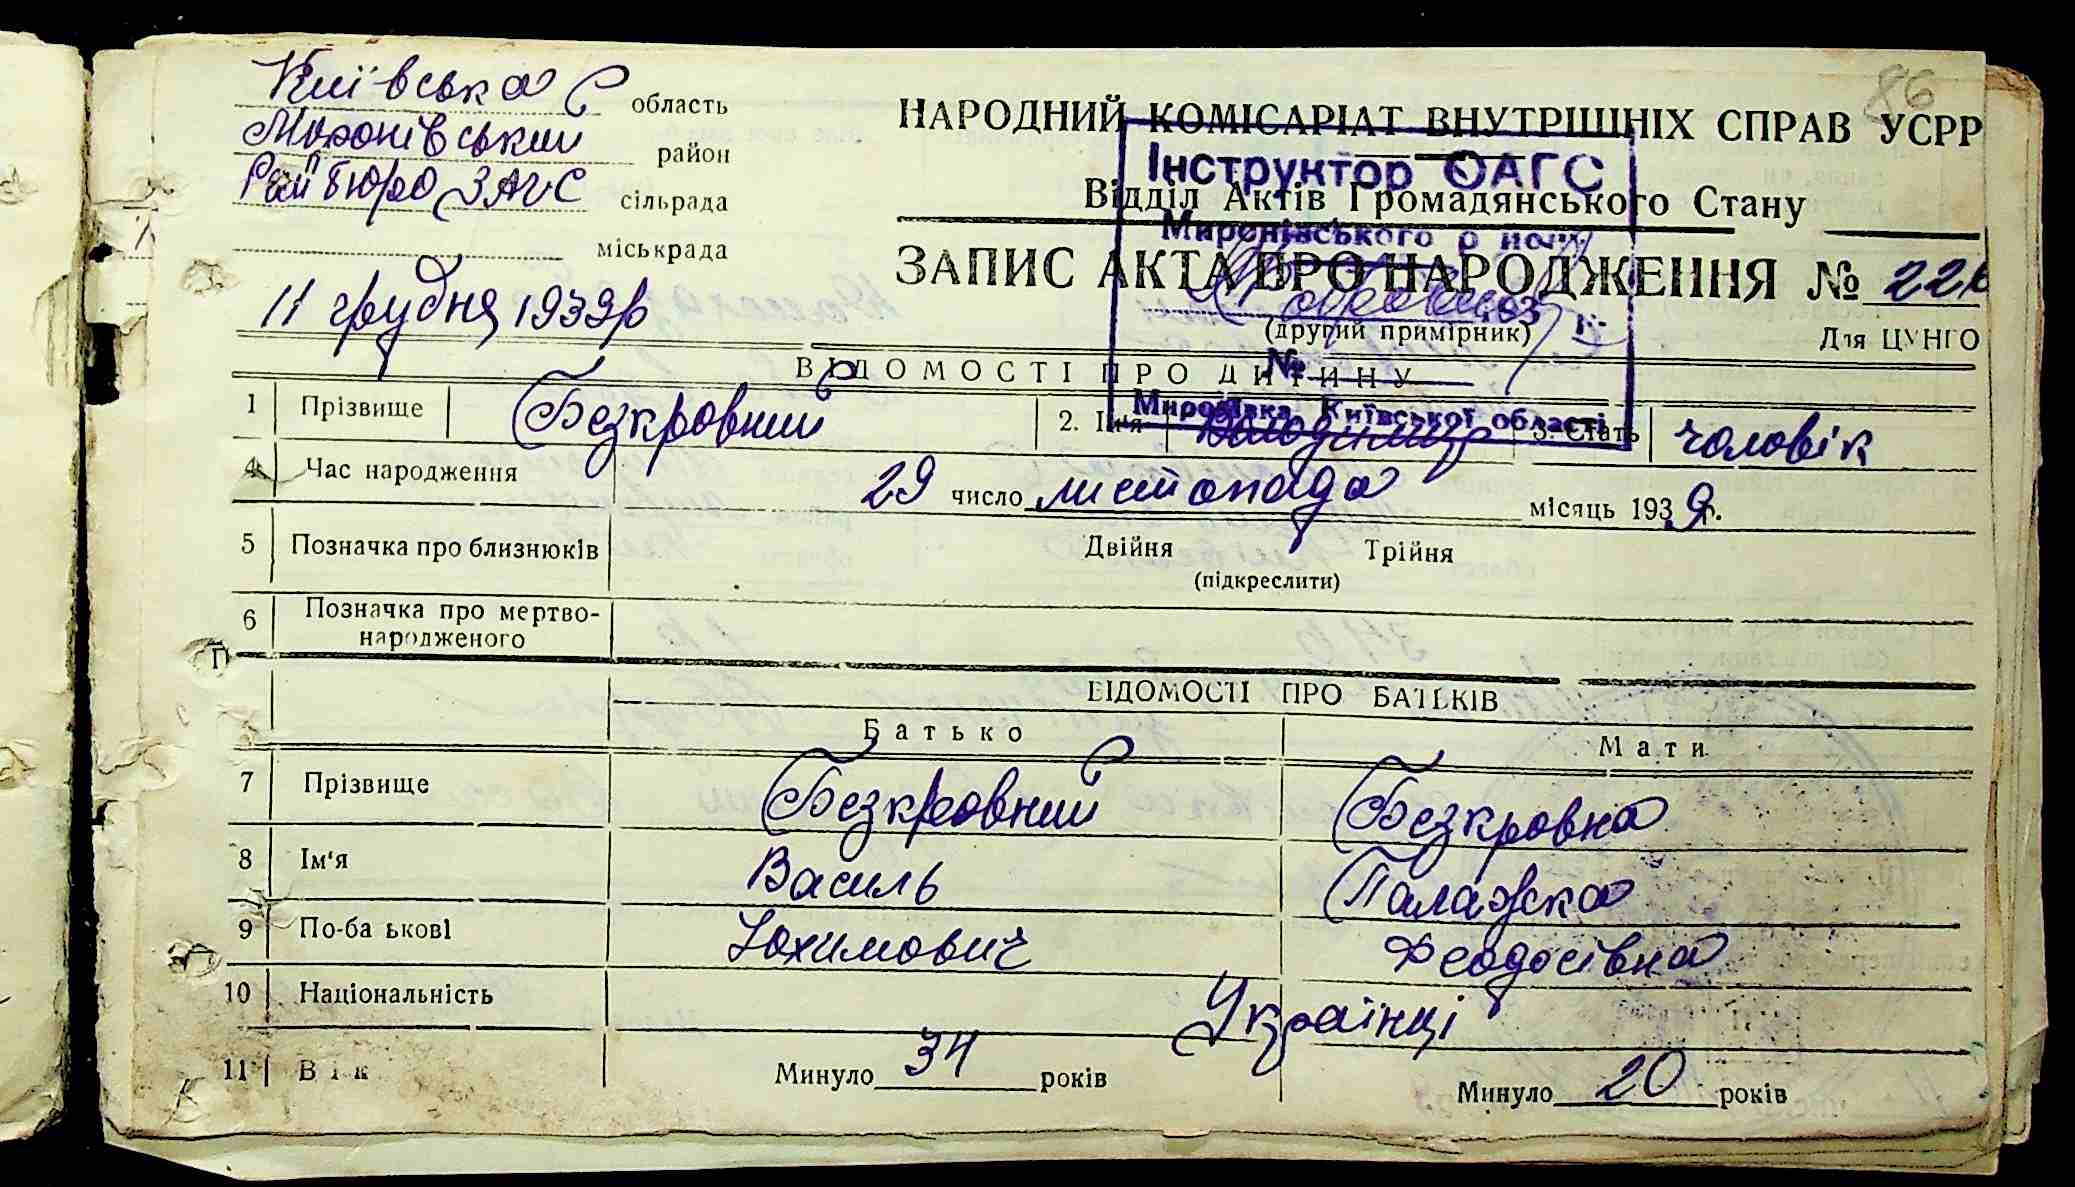 86
Київська область
район
Рай бюро ЗАГС сільрада
міськрада
11 грудня 1939р
НАРОДНИЙ КОМІСАРІАТ ВНУТРІШНІХ СПРАВ УСРР
Інструктор ОАГС
Відділ Актів Громадянського Стану
Миронівського
ЗАПИС АКТА ПРО НАРОДЖЕННЯ №
193 р.
(другий примірник)
Для ЦУНГО
ВІДОМОСТІ ПРО ДИТИНУ
№
Миронівка Київської області
1 Прізвище Безкровний 2. Ім'я Володимир 3. Стать чоловік
4 Час народження 29 число листопада місяць 1939 р.
5 Позначка про близнюків Двійня Трійня
(підкреслити)
6 Позначка про мертво-
народженого
ВІДОМОСТІ ПРО БАТЬКІВ
Батько Мати
7 Прізвище Безкровний Безкровна
8 Ім'я Василь Палажка
9 По-ба ькові Юхимович Феодосівна
10 Національність Українці
11 Вік Минуло 34 років Минуло 20 років